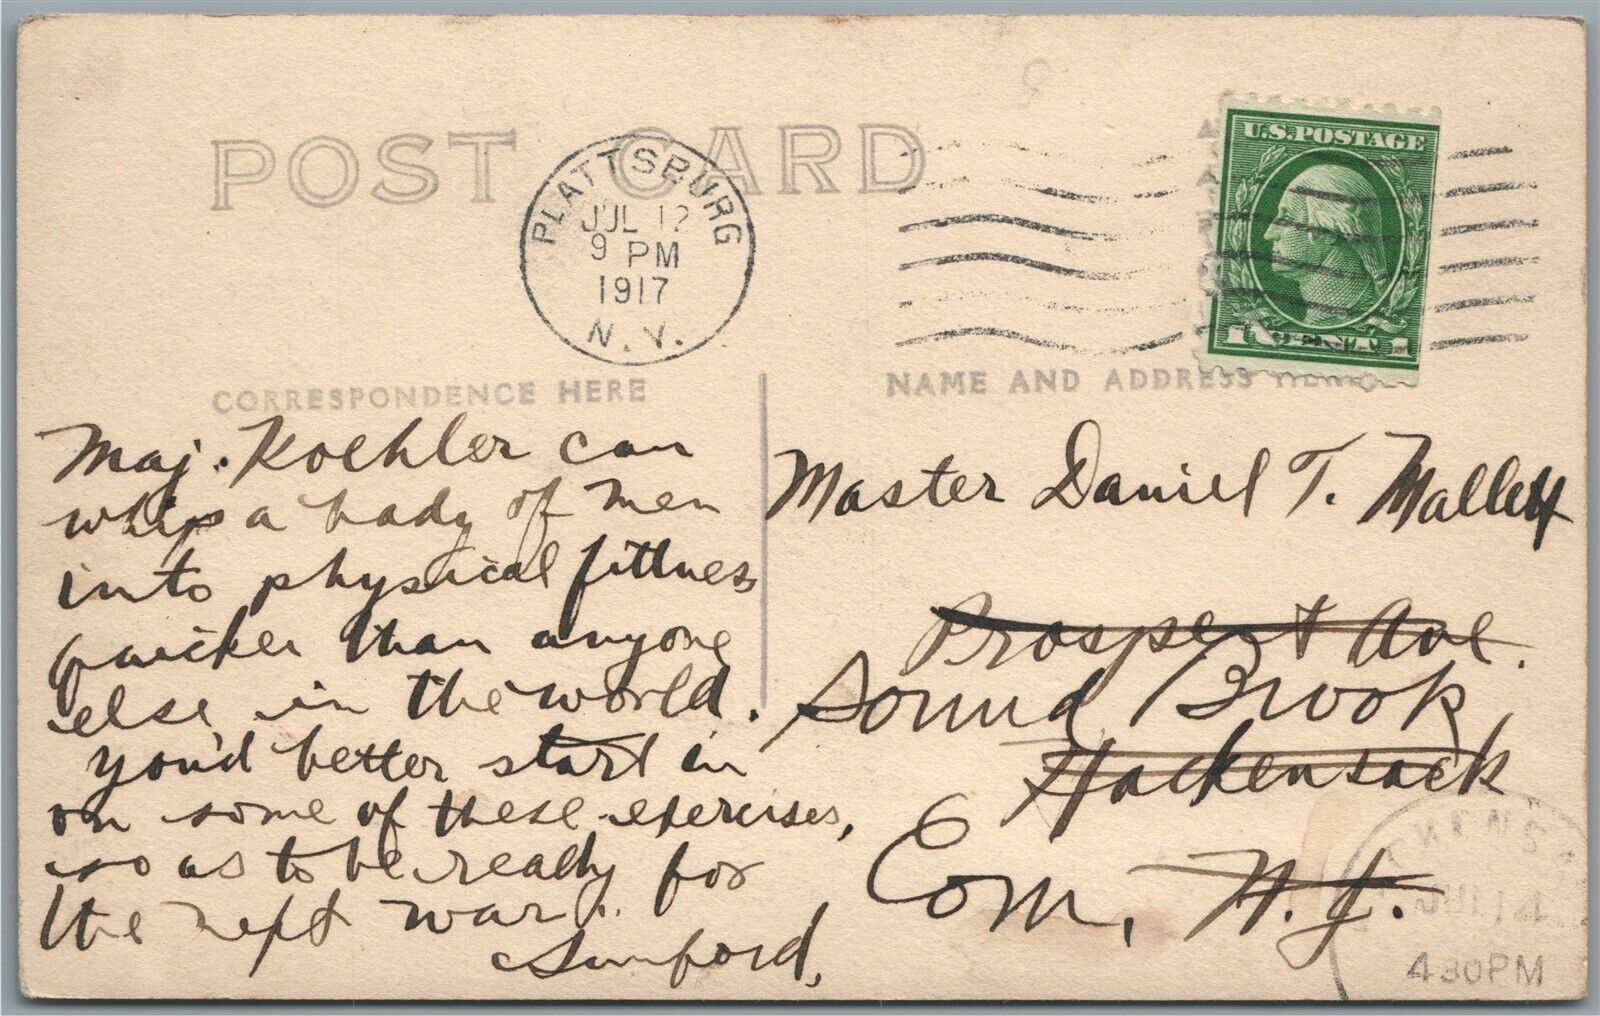 POST CARD
PLATTSBURG
JUL 12
9 PM
1917
N.Y.
U.S. POSTAGE
1 CENT 1
CORRESPONDENCE HERE
NAME AND ADDRESS HERE
Maj. Koehler can
whip a body of men
into physical fittness
quicker than anyone
else in the world.
you'd better start in
on some of these exercises,
so as to be ready for
the next war.
Sumford,
Master Daniel T. Mallett
Prospect Ave.
Sound Brook
Hackensack
Conn, N.J.
JUL 14
4 30 PM